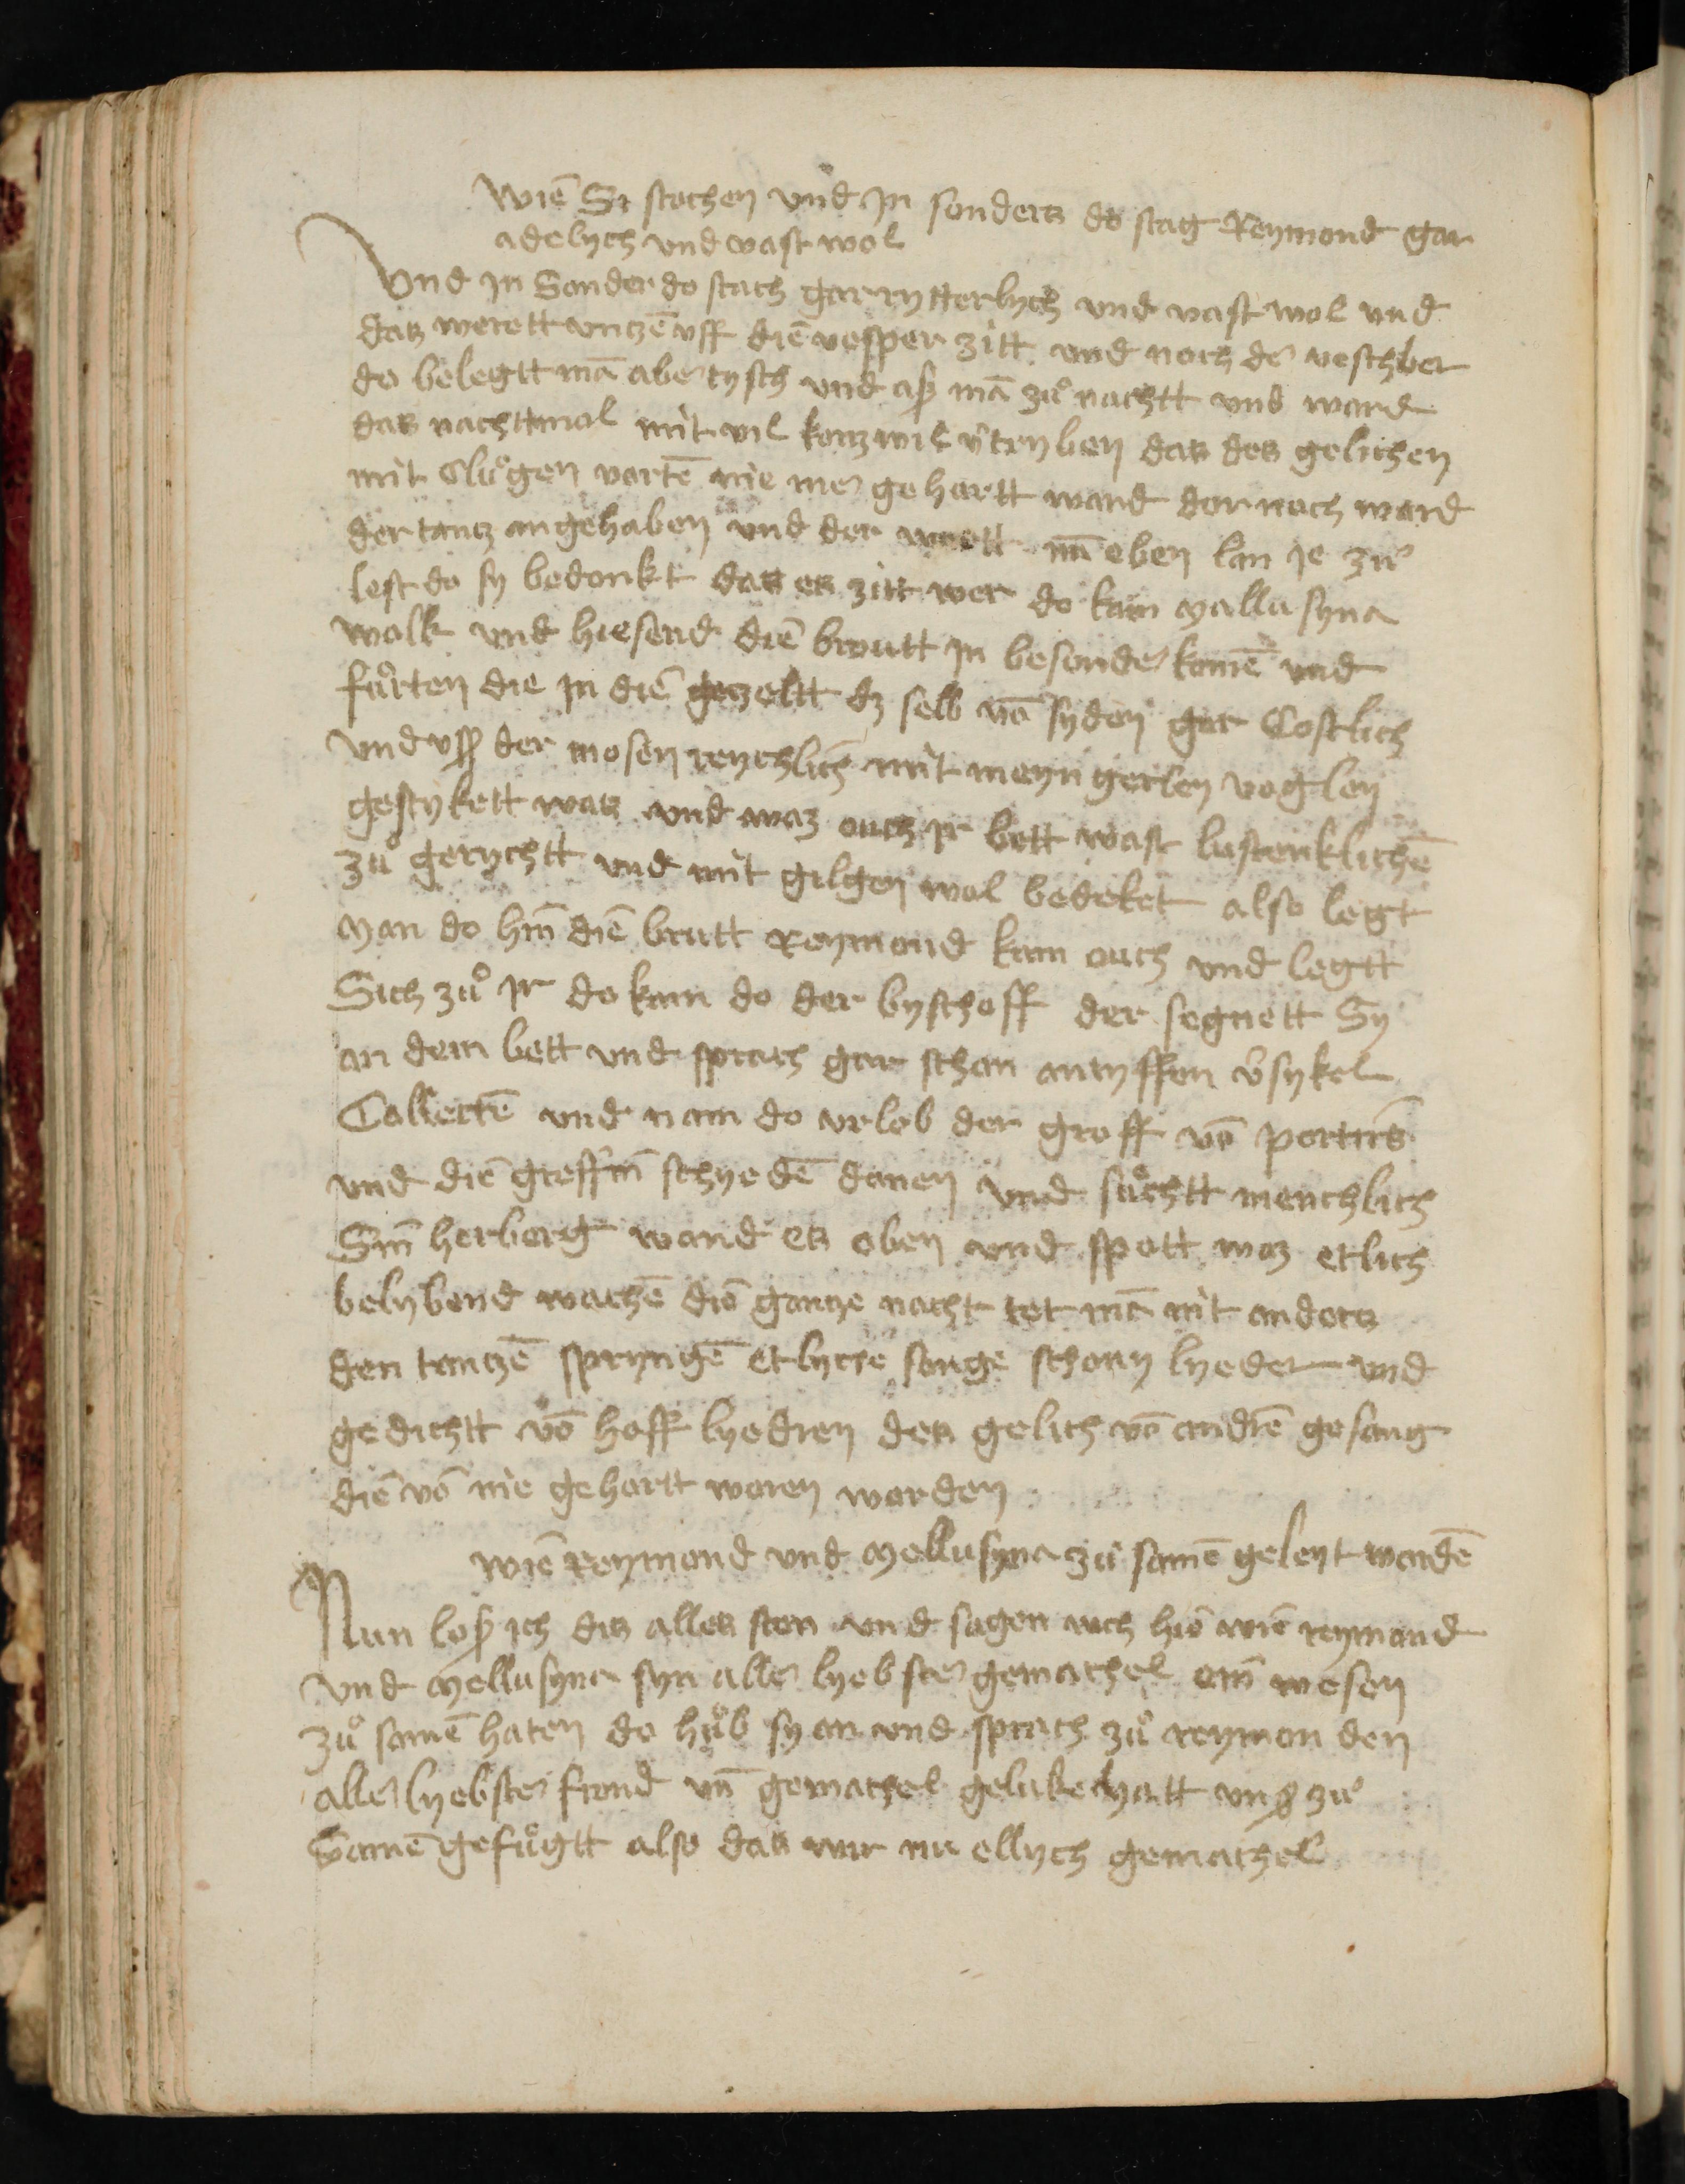 wiē Si stochen vnd jn sonders do stag Reymond gar
adelych vnd vast wol
Vnd jn Sonder do stach gar rytterlych vnd vast wol vnd
das werett vntzē vff diē vesper zitt vnd noch der veschber
do belegtt mā aber tysch vnd aß mā zuͦ nachtt vnd ward
das nachttmal mit vil kortzwil v̄tryben das des gelichen
mit cluͦgen vortē nie mer gehortt ward dor noch ward
der tantz angehaben vnd der werett nū eben lan je zuͦ
lest do sy bedonkt das es zitt wer do kam Mallusyna
wolk vnd hiesend diē broutt jn besonder komē vnd
fuͦrten die jn diē gezeltt dz selb vō syden gar Costlich
vnd vß der mosen reychlich mit meyngerley voglen
gestykett was vnd waz ouch jr bett wast lustenklichē
zuͦ gerychtt vnd mit gilgen wol bedeket also legt
Man do hin diē brutt Reymond kam ouch vnd legtt
Sich zuͦ jr do kam do der byschoff der segnett Sy
an dem bett vnd sprach gar schon antyffen v̄sykel
Collectē vnd nam do vrlob der groff vō portirs
vnd diē greffin schyedē danen vnd suͦchtt menchlich
Sin herberg wand es oben vnd spott waz etlich
belybend wachē diē gantze nacht tet mā nit anders
den tantzē spryngē etlyche songe schony lyeder vnd
gedichtt vō hoff lyedren des gelich vō andrē gesang
diē vō nie gehortt woren worden
wiē Reymond vnd Mellusyna zuͦ samē geleyt wordē
Nun loß ich dis alles ston vnd sagen vch hie wiē reymond
vnd Mellusyna syn aller lyebster gemachel ein wesen
zuͦ samē haten do huͦb sy an vnd sprach zuͦ reymon den
aller lyebster frond vn̄ gemachel geluke hatt vnß zuͦ
Samē gefuͦgtt also das wir nu ellych gemachel